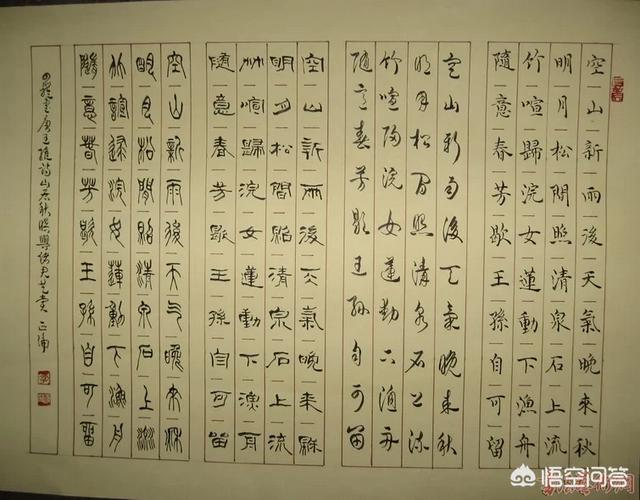 空山新雨後天氣晚來秋
明月松間照清泉石上流
竹喧歸浣女蓮動下漁舟
隨意春芳歇王孫自可留
空山新雨後天氣晚來秋
明月松間照清泉石上流
竹喧歸浣女蓮動下漁舟
隨意春芳歇王孫自可留
空山新雨後天氣晚來秋
明月松間照清泉石上流
竹喧歸浣女蓮動下漁舟
隨意春芳歇王孫自可留
空山新雨後天氣晚來秋
明月松間照清泉石上流
竹喧歸浣女蓮動下漁舟
隨意春芳歇王孫自可留
書唐王維詩山居秋暝
悟空问答